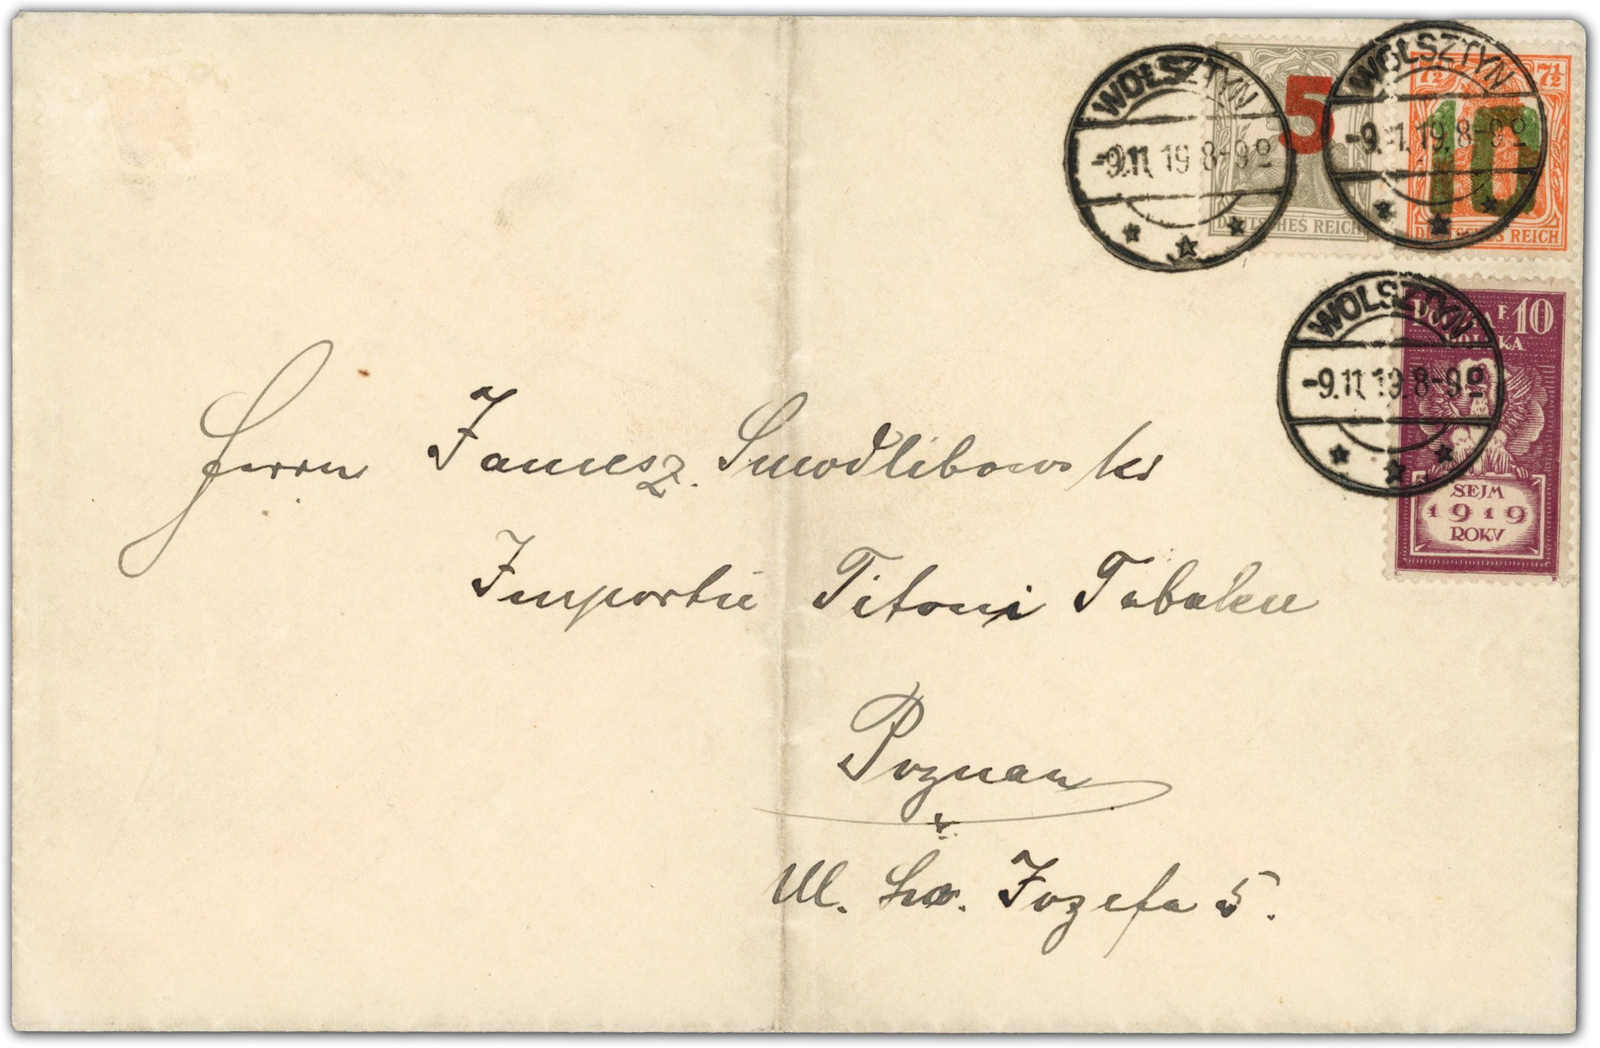 WOLSZTYN
-9.11.19.8-9º
5
DEUTSCHES REICH
WOLSZTYN
-9. 1.19.8-9º
7½ 7½
10
DEUTSCHES REICH
WOLSZTYN
-9.11.19.8-9º
F. 10
5
SEJM
1919
ROKV
Herrn Janusz. Smodlibowski
Importie Titoni Tabaku
Poznan
Ul. Józefa 5.